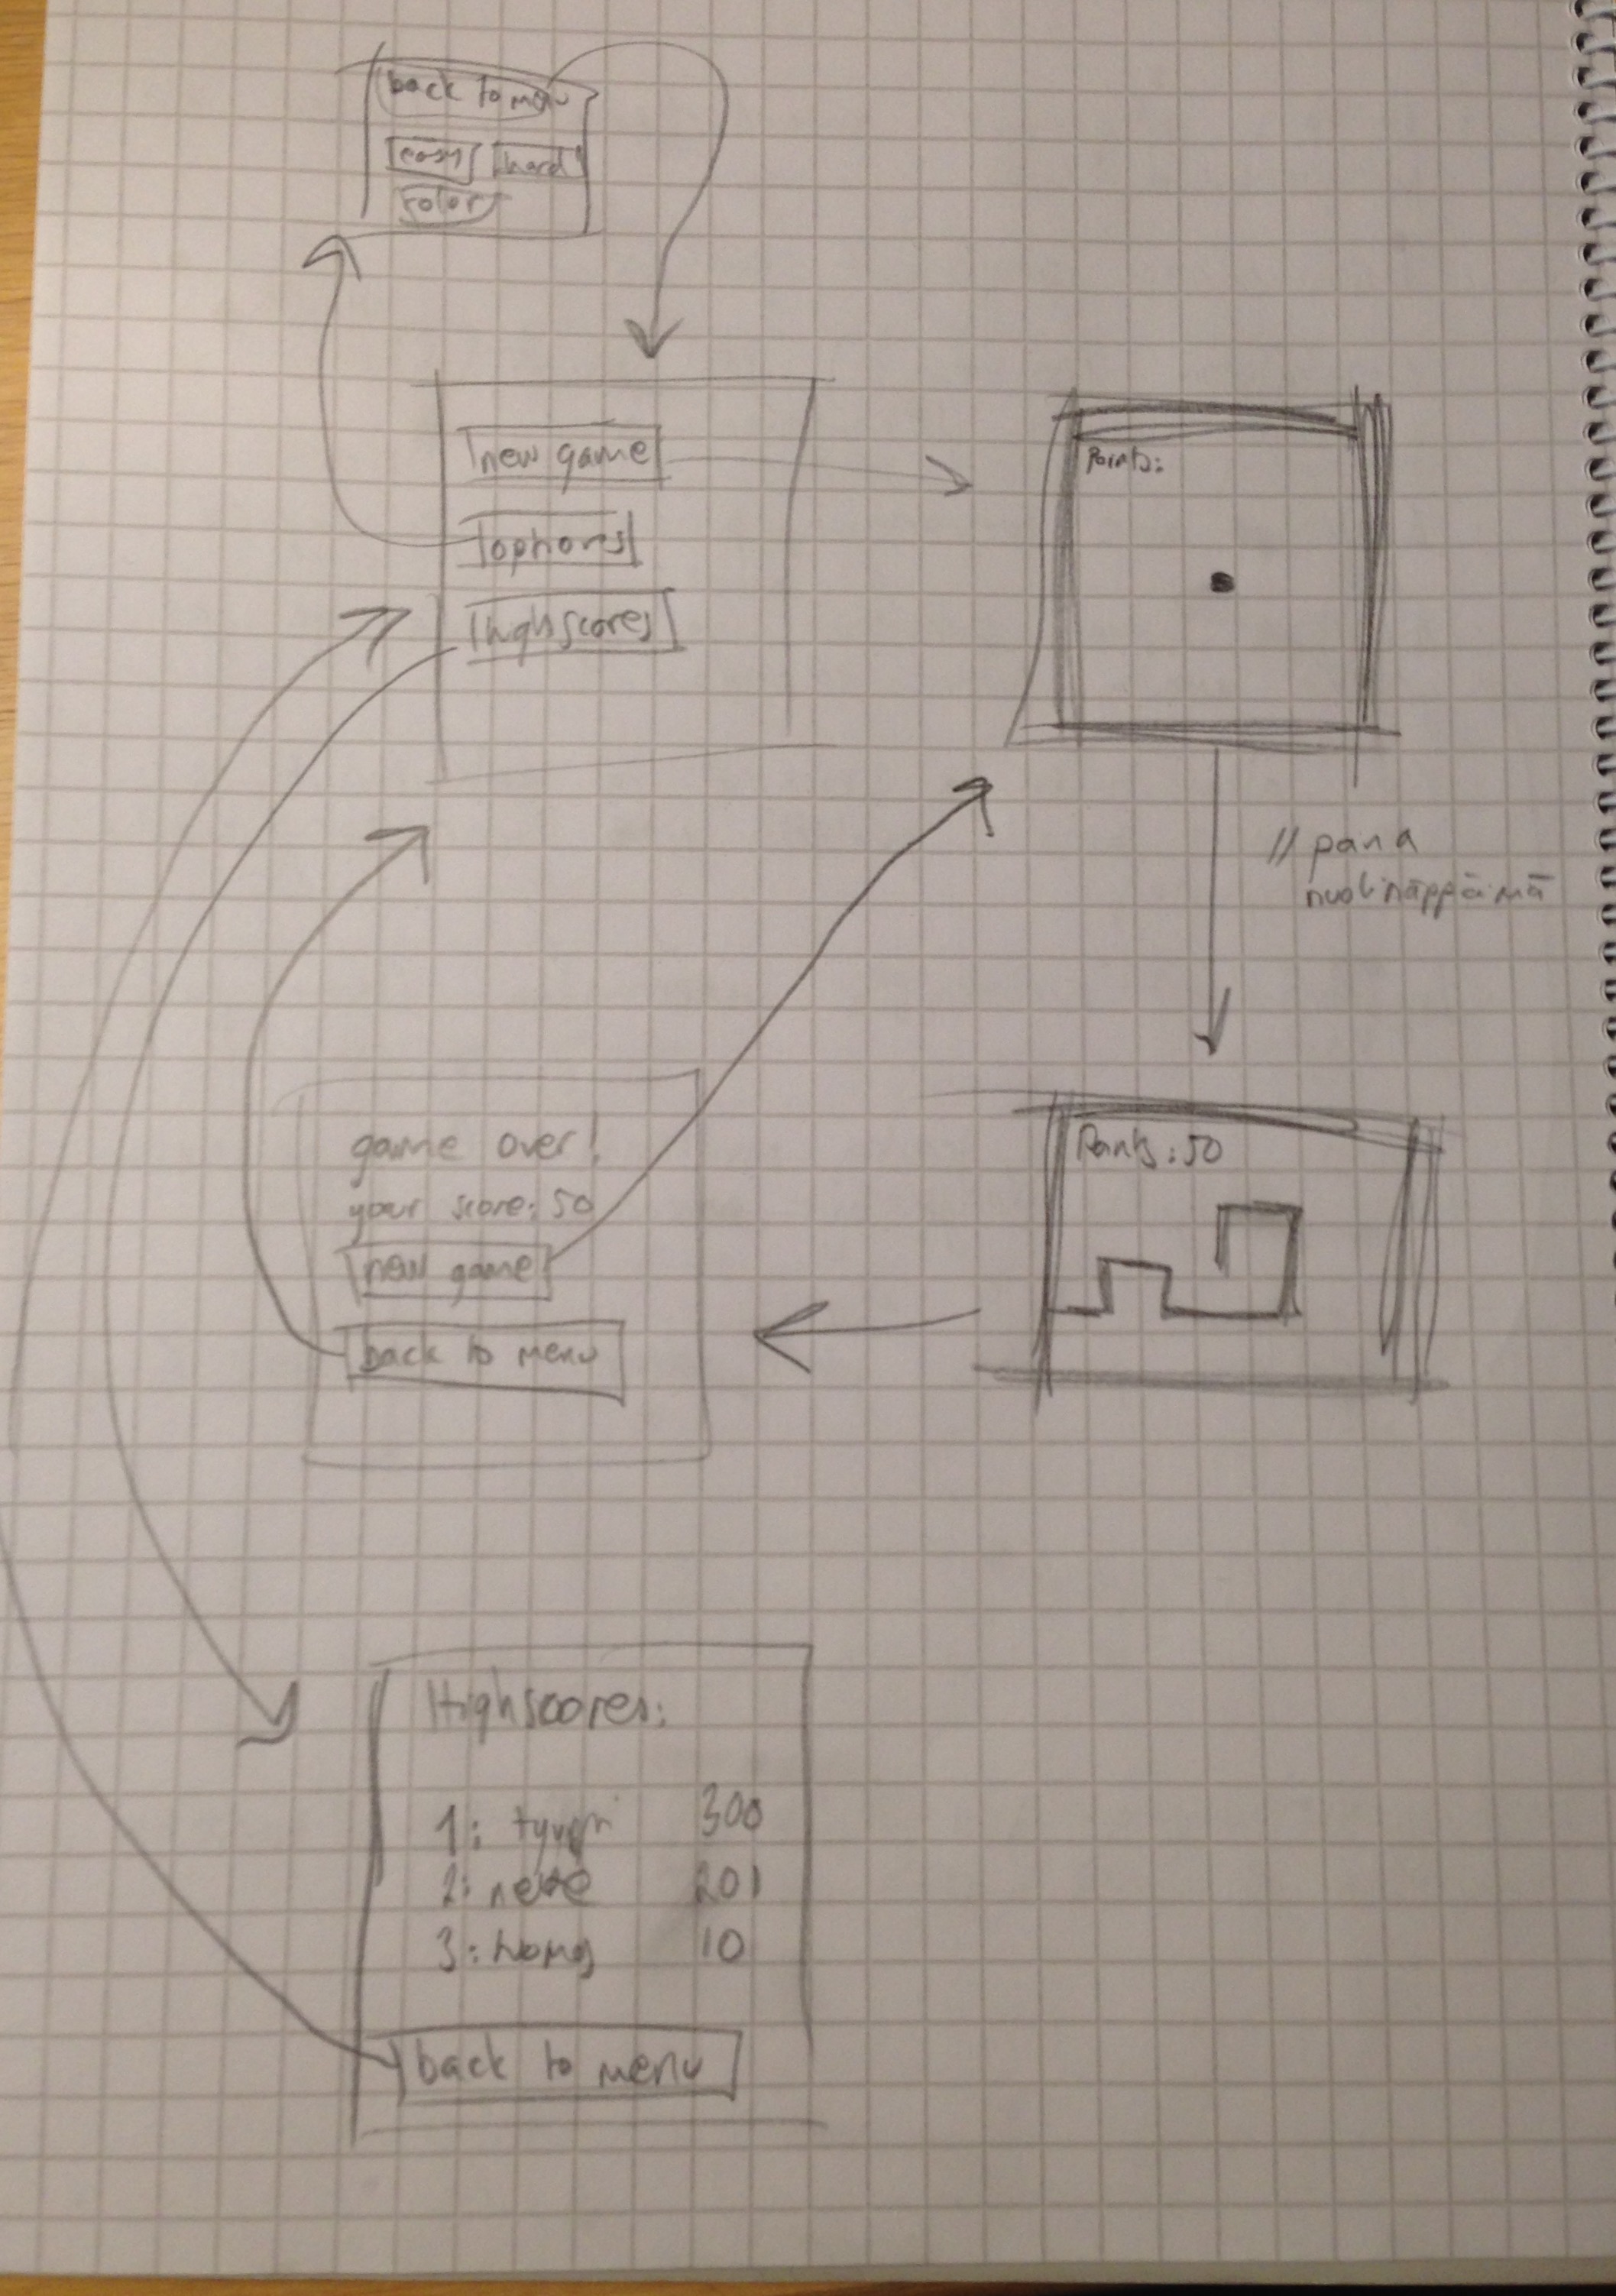 back to menu
easy hard
color
new game
options
highscores
Points:
// paina
nuolinäppäimiä
game over!
your score: 50
new game
back to menu
Points: 50
Highscores:
1: 300
2: 201
3: 10
back to menu